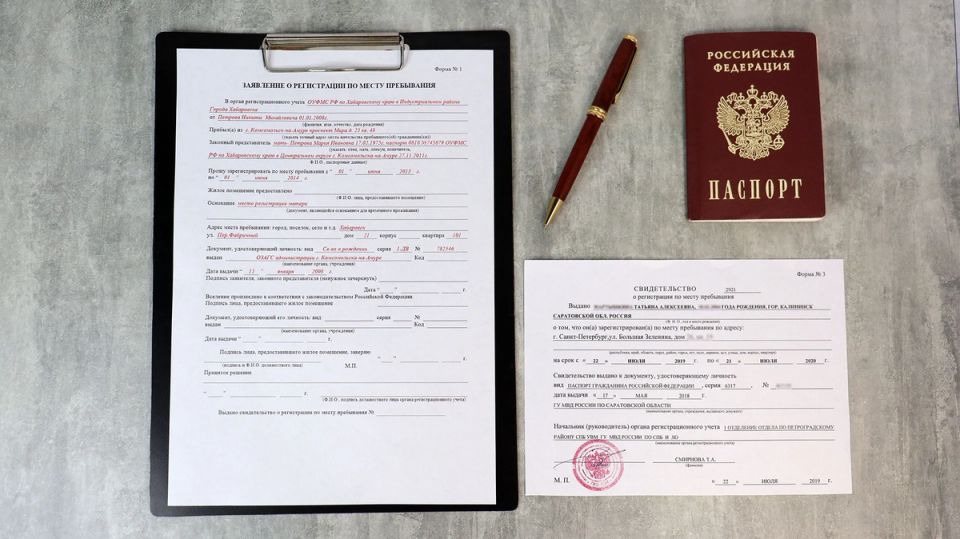 Форма № 1
ЗАЯВЛЕНИЕ О РЕГИСТРАЦИИ ПО МЕСТУ ПРЕБЫВАНИЯ
В орган регистрационного учета ОУФМС РФ по Хабаровскому краю в Индустриальном районе
Города Хабаровска
от Петрова Никиты Михайловича 01.01.2008г.
(фамилия, имя, отчество, дата рождения)
Прибыл(а) из г. Комсомольск-на-Амуре проспект Мира д. 25 кв. 49
(указать точный адрес места жительства прибывшего(ей) гражданина(ки))
Законный представитель мать- Петрова Мария Ивановна 17.02.1975г. паспорт ОУФМС
(указать: отец, мать, опекун, попечитель,
РФ по Хабаровскому краю в Центральном округе г. Комсомольска-на-Амуре 27.11.2011г.
Ф.И.О., паспортные данные)
Прошу зарегистрировать по месту пребывания с " 01 " июня 2013 г.
по " 01 " июня 2014 г.
Жилое помещение предоставлено
(Ф.И.О. лица, предоставившего помещение)
Основание место регистрации матери
(документ, являющийся основанием для временного проживания)
Адрес места пребывания: город, поселок, село и т.д. Хабаровск
ул. Пер.Фабричный дом 21 корпус квартира 101
Документ, удостоверяющий личность: вид Св-во о рождении серия 1-ДВ № 782546
выдан ОЗАГС администрации г. Комсомольска-на-Амуре Код
(наименование органа, учреждения)
Дата выдачи " 15 " января 2008 г.
Подпись заявителя, законного представителя (ненужное зачеркнуть)
Дата " " г.
Вселение произведено в соответствии с законодательством Российской Федерации
Подпись лица, предоставившего жилое помещение
Документ, удостоверяющий его личность: вид серия №
выдан Код
(наименование органа, учреждения)
Дата выдачи " " г.
Подпись лица, предоставившего жилое помещение, заверяю
" " г.
(подпись и Ф.И.О. должностного лица) М.П.
Принятое решение
" " г.
(Ф.И.О., подпись должностного лица органа регистрационного учета)
Выдано свидетельство о регистрации по месту пребывания №
РОССИЙСКАЯ
ФЕДЕРАЦИЯ
ПАСПОРТ
Форма № 3
СВИДЕТЕЛЬСТВО 2021
о регистрации по месту пребывания
Выдано ТАТЬЯНА АЛЕКСЕЕВНА, ГОДА РОЖДЕНИЯ, ГОР. КАЛИНИНСК
САРАТОВСКОЙ ОБЛ. РОССИЯ
(Ф.И.О., год и место рождения)
о том, что он(а) зарегистрирован(а) по месту пребывания по адресу:
г. Санкт-Петербург,ул. Большая Зеленина, дом
(республика, край, область, округ, район, город, пгт, село, деревня, аул, улица, дом, корпус, квартира)
на срок с « 22 » ИЮЛЯ 2019 г. по « 21 » ИЮЛЯ 2020 г.
Свидетельство выдано к документу, удостоверяющему личность
вид ПАСПОРТ ГРАЖДАНИНА РОССИЙСКОЙ ФЕДЕРАЦИИ , серия 6317 , №
дата выдачи « 17 » МАЯ 2018 г.
ГУ МВД РОССИИ ПО САРАТОВСКОЙ ОБЛАСТИ
(наименование органа, учреждения, выдавшего документ)
Начальник (руководитель) органа регистрационного учета 1 ОТДЕЛЕНИЕ ОТДЕЛА ПО ПЕТРОГРАДСКОМУ
РАЙОНУ СПБ УВМ ГУ МВД РОССИИ ПО СПБ И ЛО
(наименование органа регистрационного учета)
СМИРНОВА Т.А.
(фамилия)
М. П. « 22 » ИЮЛЯ 2019 г.